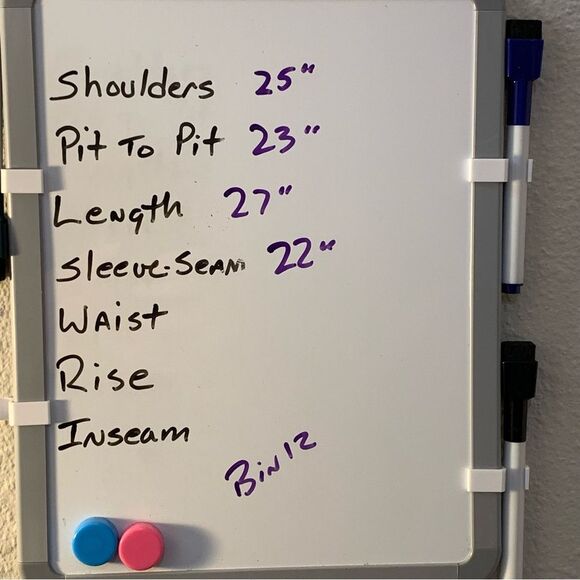 Shoulders 25"
Pit To Pit 23"
Length 27"
Sleeve-Seam 22"
Waist
Rise
Inseam
Bin 12